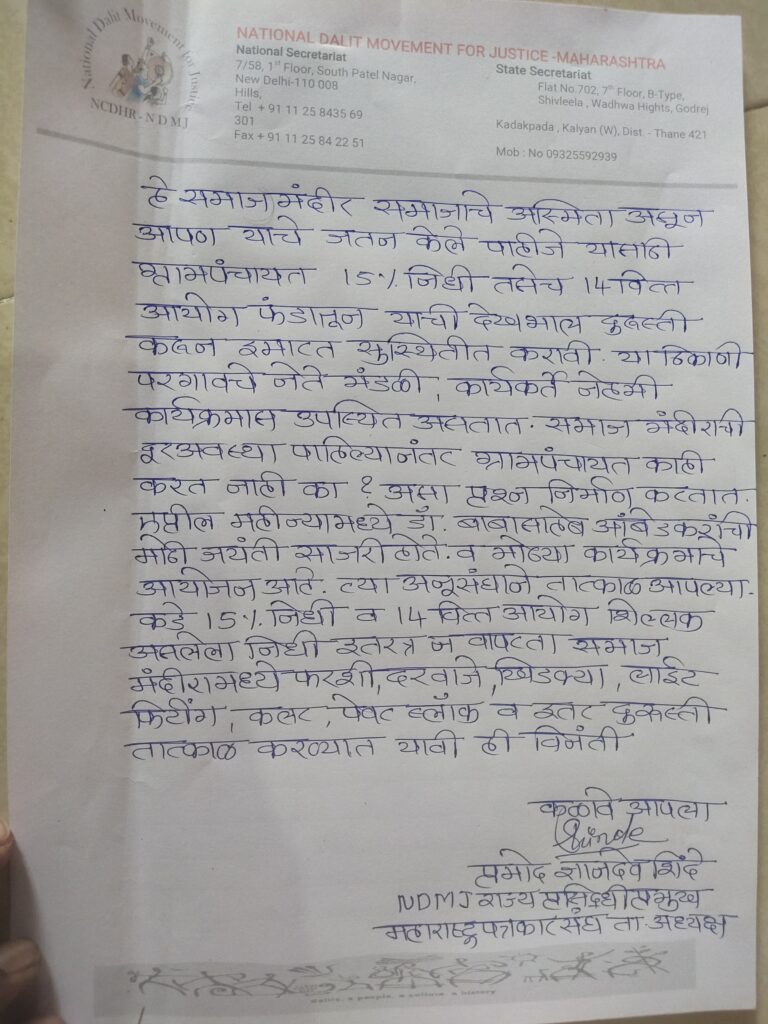 National Dalit Movement for Justice
NCDHR - N D M J
NATIONAL DALIT MOVEMENT FOR JUSTICE -MAHARASHTRA
National Secretariat
7/58, 1st Floor, South Patel Nagar,
New Delhi-110 008
Hills,
Tel + 91 11 25 8435 69
301
Fax + 91 11 25 84 22 51
State Secretariat
Flat No.702, 7th Floor, B-Type,
Shivleela , Wadhwa Hights, Godrej
Kadakpada , Kalyan (W), Dist. - Thane 421
Mob : No 09325592939
हे समाजमंदीर समाजाचे अस्मिता असून
आपण याचे जतन केले पाहीजे यासाठी
ग्रामपंचायत 15% निधी तसेच 14 वित्त
आयोग फंडातून याची देखभाल दुरूस्ती
करून इमारत सुस्थितीत करावी. या ठिकाणी
परगावचे नेते मंडळी, कार्यकर्ते नेहमी
कार्यक्रमास उपस्थित असतात. समाज मंदीराची
दूरअवस्था पाहिल्यानंतर ग्रामपंचायत काही
करत नाही का ? असा प्रश्न निर्माण करतात.
एप्रील महीन्यामध्ये डॉ. बाबासाहेब आंबेडकरांची
मोठी जयंती साजरी होते. व मोठ्या कार्यक्रमाचे
आयोजन आहे. त्या अनूसंधाने तात्काळ आपल्या-
कडे 15% निधी व 14 वित्त आयोग शिल्लक
असलेला निधी इतरत्र न वापरता समाज
मंदीरामध्ये फरशी, दरवाजे, खिडक्या, लाईट
फिटींग, कलर, पेवर ब्लॉक व इतर दुरूस्ती
तात्काळ करण्यात यावी ही विनंती
कळावे आपला
Shinde
प्रमोद ज्ञानदेव शिंदे
NDMJ राज्य प्रसिद्धीप्रमुख
महाराष्ट्र पत्रकार संघ ता. अध्यक्ष